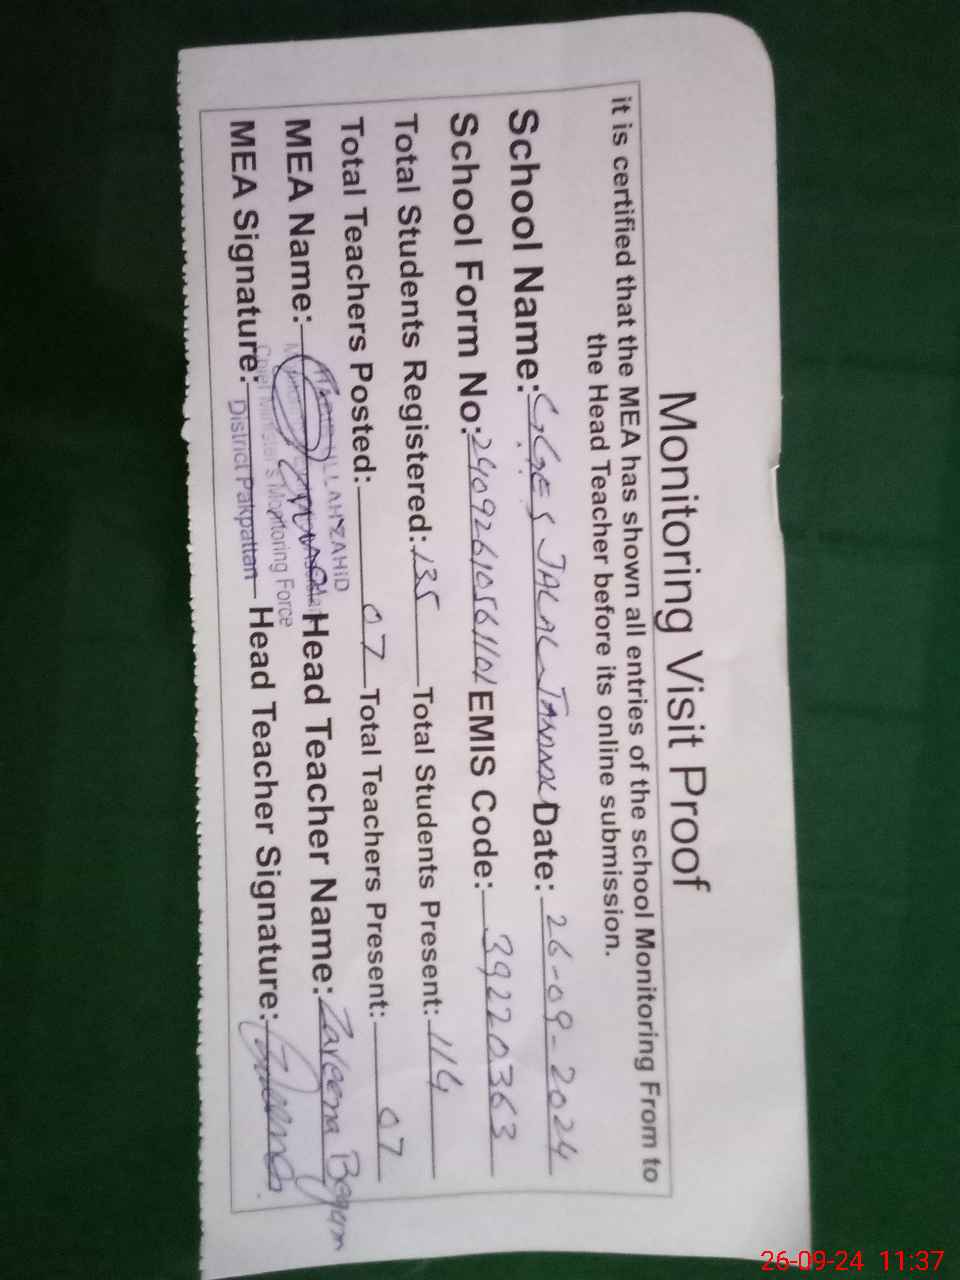 Monitoring Visit Proof
it is certified that the MEA has shown all entries of the school Monitoring From to
the Head Teacher before its online submission.
School Name: GGES JALAL Date: 26-09-2024
School Form No: 24092610561101 EMIS Code: 39220363
Total Students Registered: 135 Total Students Present: 114
Total Teachers Posted: 07 Total Teachers Present: 07
MEA Name: Head Teacher Name: Zareena Begum
MEA Signature: Head Teacher Signature:
ZAHID
Chief Minister's Monitoring Force
District Pakpattan
26-09-24 11:37